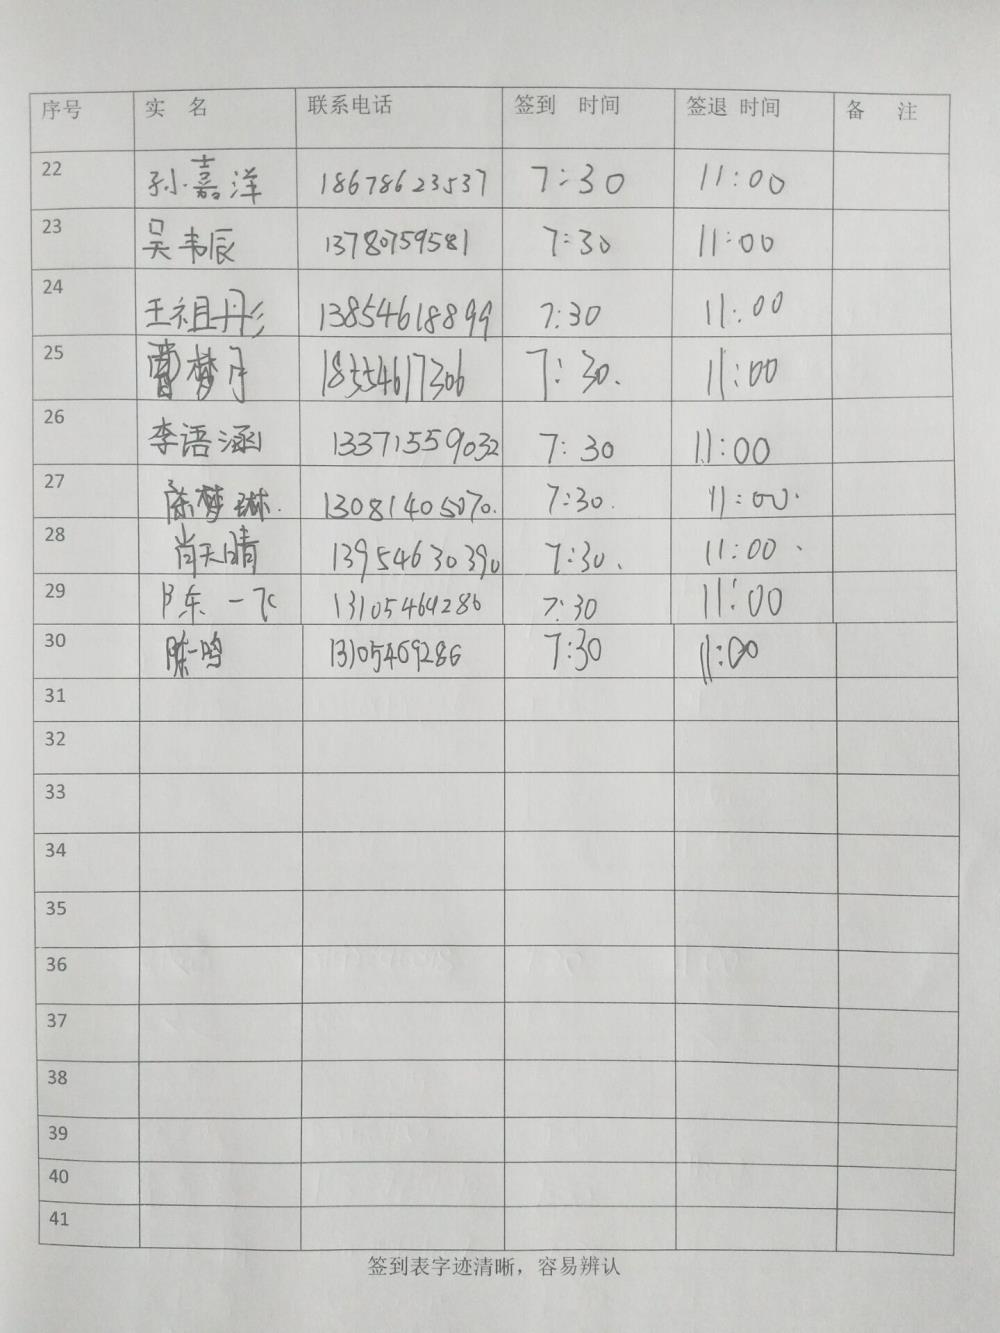 序号 实 名 联系电话 签到 时间 签退 时间 备 注
22 孙嘉洋 18678623537 7:30 11:00
23 吴韦辰 13780759581 7:30 11:00
24 王祖彤 13854618899 7:30 11:00
25 曹梦月 18554617306 7:30. 11:00
26 李语涵 13371559032 7:30 11:00
27 陈梦琳. 13081405070. 7:30. 11:00.
28 肖天晴 13954630390 7:30. 11:00.
29 陈一飞 13105469286 7:30 11:00
30 陈一鸣 13105469286 7:30 11:00
31
32
33
34
35
36
37
38
39
40
41
签到表字迹清晰，容易辨认